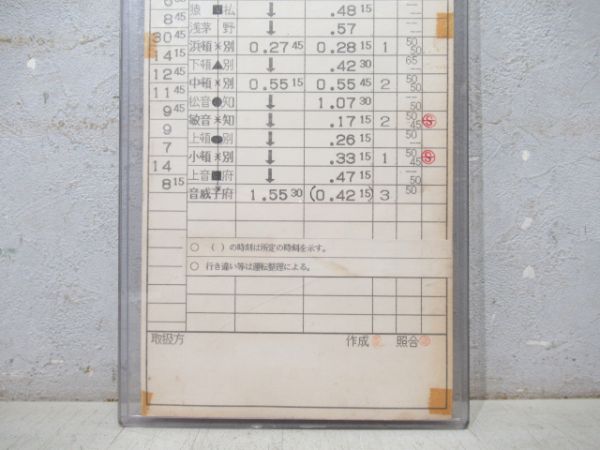 猿■払 ↓ .48 15
8 45 浅茅野 ↓ .57
30 45 浜頓＊別 0.27 45 0.28 15 1 50 50
14 15 下頓▲別 ↓ .42 30 65
12 45 中頓＊別 0.55 15 0.55 45 2 50
11 45 松音●知 ↓ 1.07 30
9 45 敏音＊知 ↓ .17 15 2 50 45 Ⓢ
9 上頓●別 ↓ .26 15
7 小頓＊別 ↓ .33 15 1 50 45 Ⓢ
14 上音■府 ↓ .47 15
8 15 音威子府 1.55 30 (0.42 15) 3 50
○ ( )の時刻は所定の時刻を示す。
○ 行き違い等は運転整理による。
取扱方 作成 照合